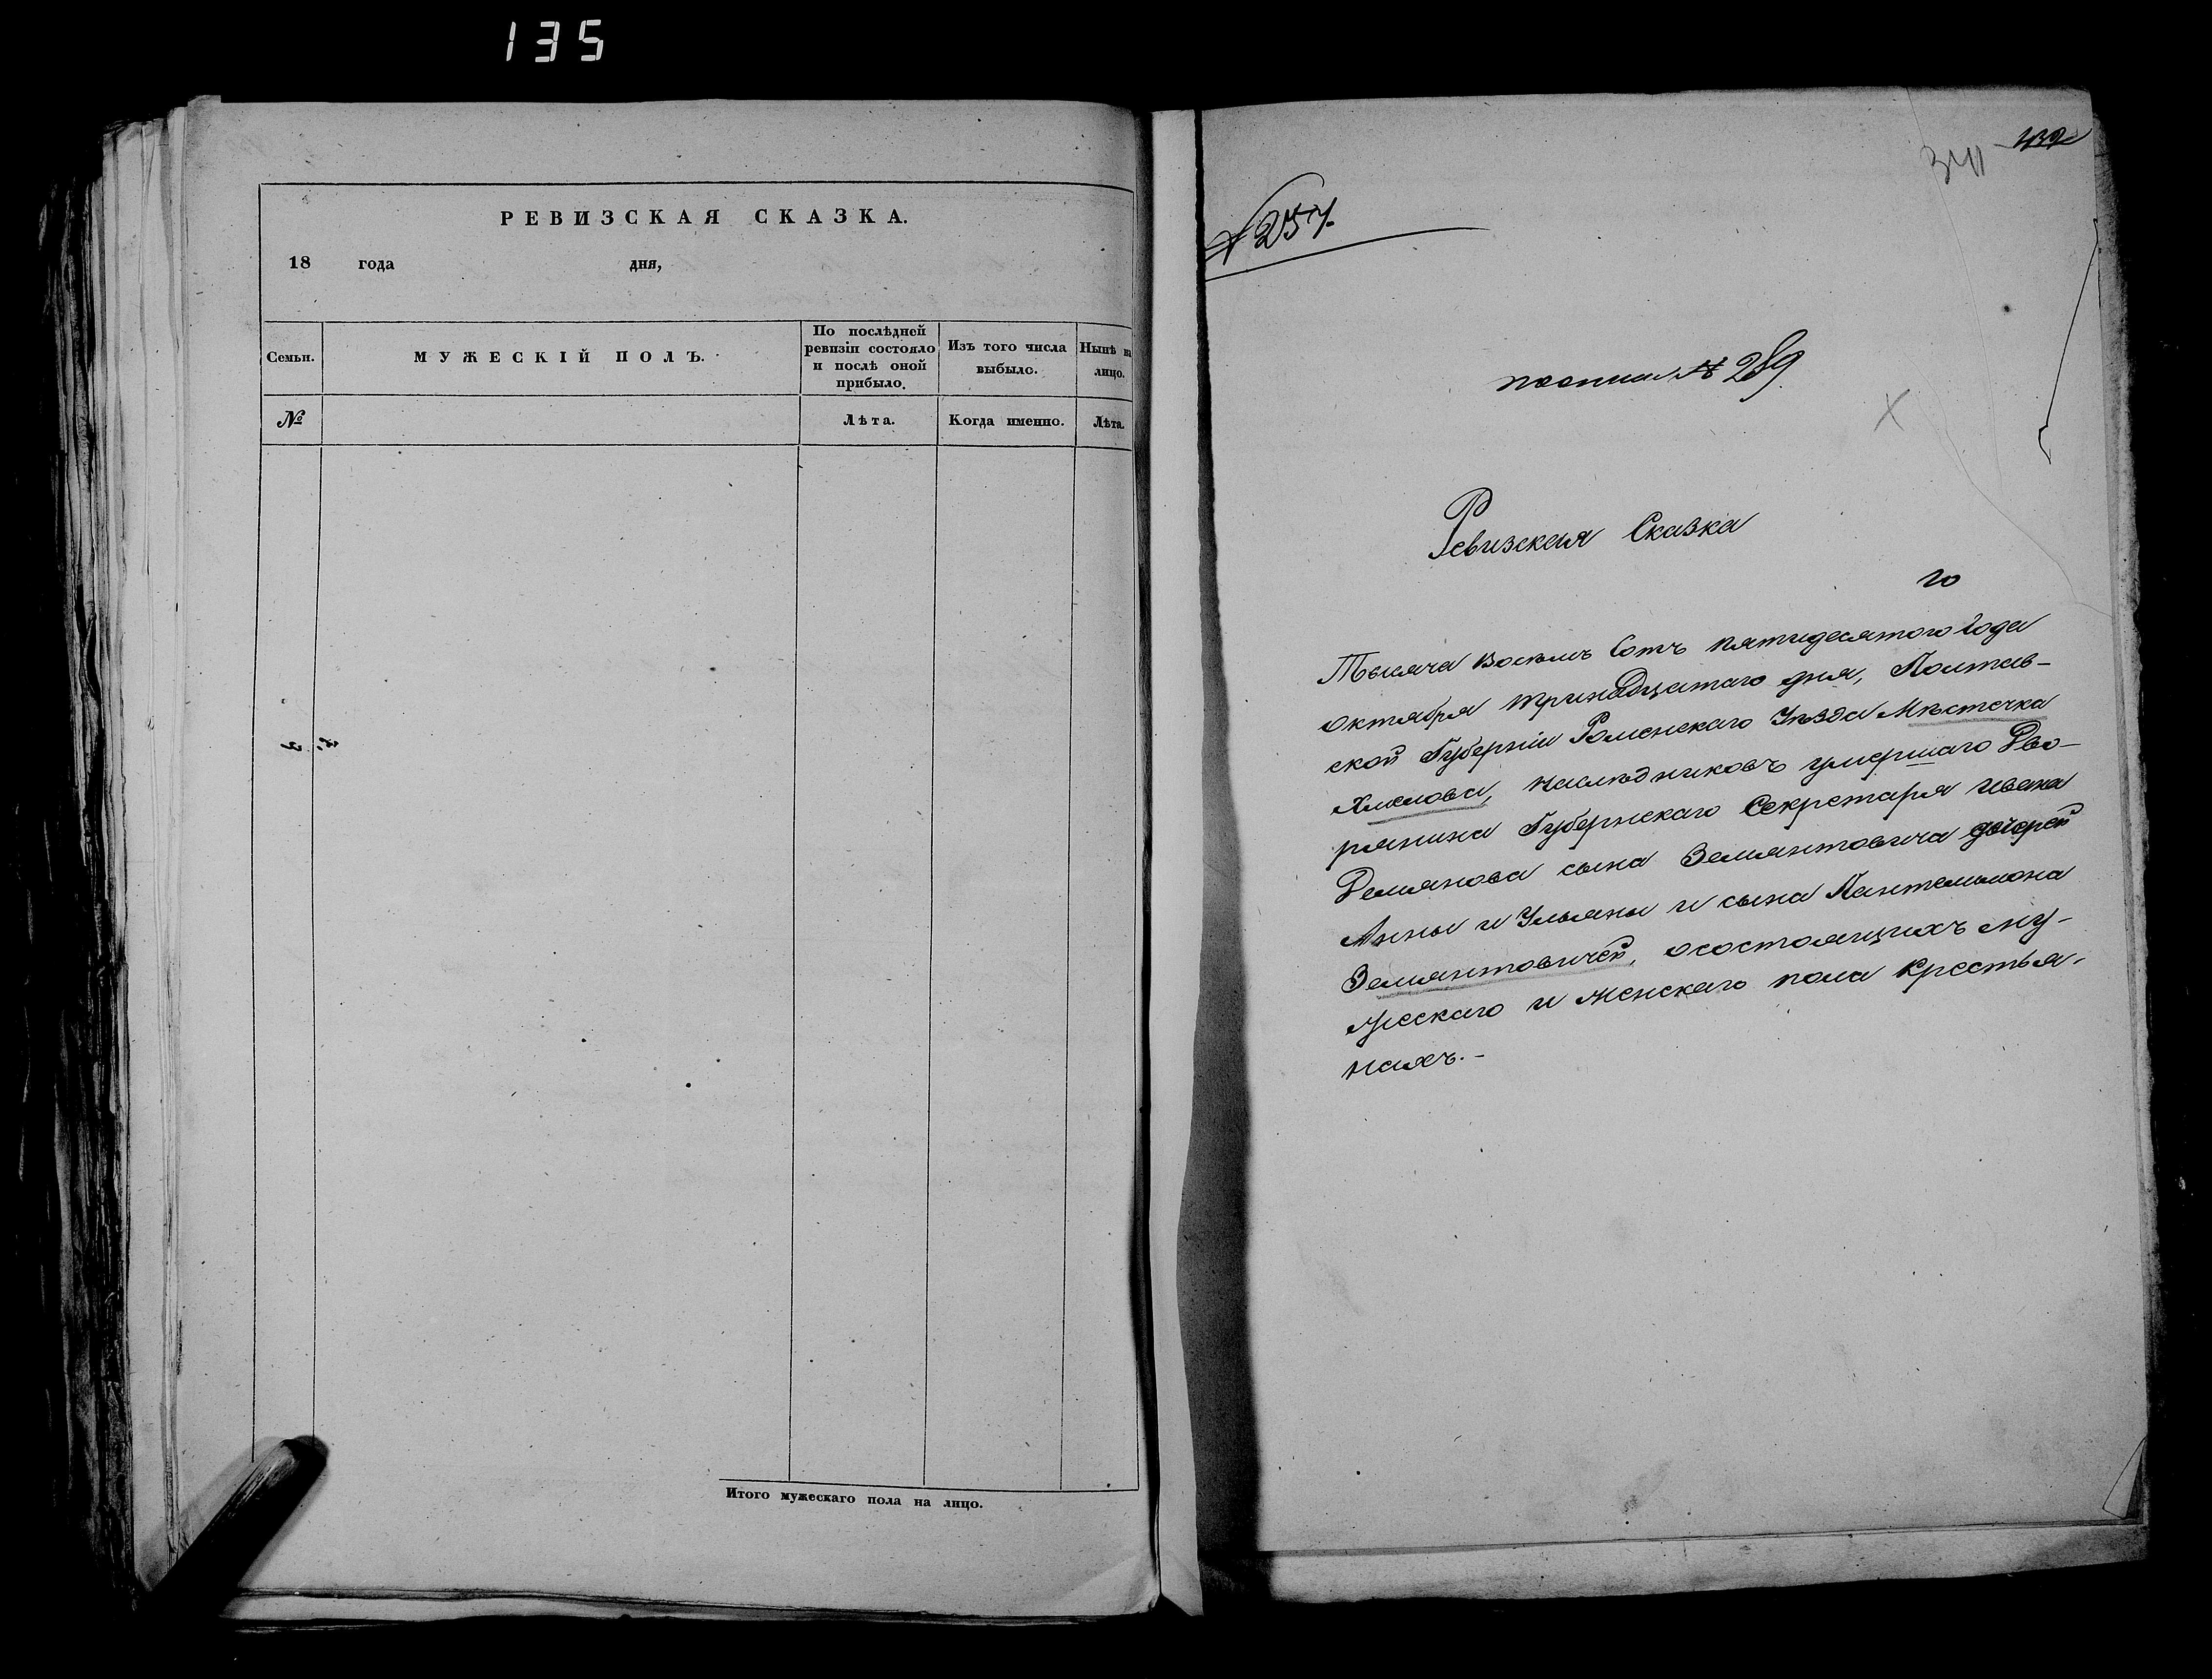 135
РЕВИЗСКАЯ СКАЗКА.
18 года дня,
Семьи.
МУЖЕСКІЙ ПОЛЪ.
По послѣдней
ревизіи состояло
и послѣ оной
прибыло.
Изъ того числа
выбыло.
Нынѣ на
лицо.
№
Лѣта.
Когда именно.
Лѣта.
Итого мужескаго пола на лицо.
341
№ 257.
№ 289.
Ревизская Сказка
го
Тысяча восемь Сотъ пятидесятого Года
октября тринадцатаго дня, Полтав-
ской Губерніи Роменскаго Уѣзда Мѣстечка
Хмелова, наслѣдниковъ умершаго Дво-
рянина Губернскаго Секретаря Ивана
Демянова сына Земянтовича дочерей
Анны и Ульяны и сына Пантелимона
Земянтовичей, осостоящихъ му-
жескаго и женскаго пола крестья-
нахъ.-